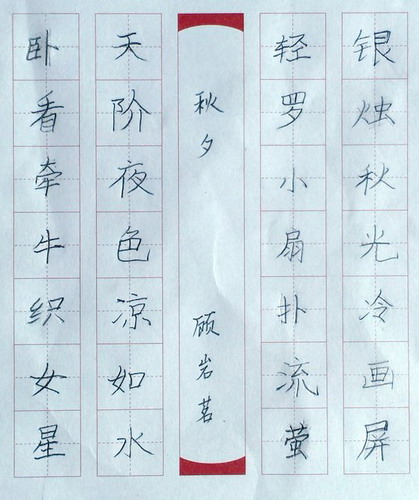 银烛秋光冷画屏
轻罗小扇扑流萤
秋夕
顾岩茗
天阶夜色凉如水
卧看牵牛织女星